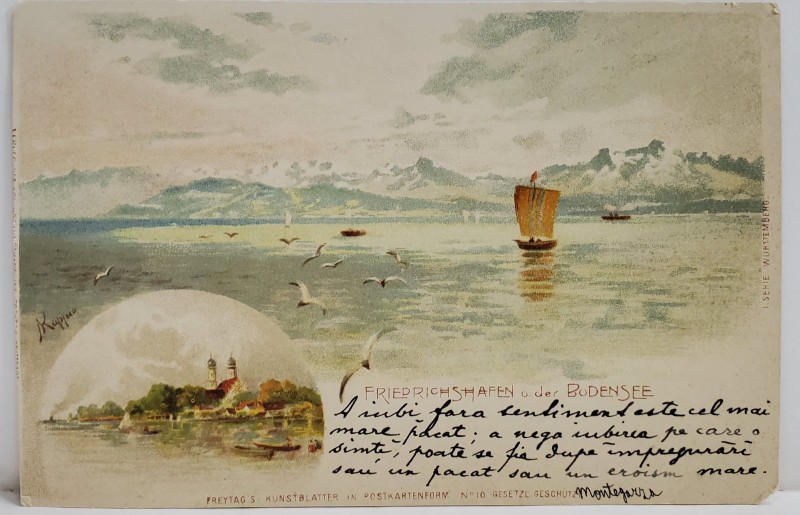 Kappis
FRIEDRICHSHAFEN u. der BODENSEE
A iubi fara sentiment este cel mai
mare păcat; a nega iubirea pe care o
simte, poate se fie după impregurări
sau un pacat sau un eroism mare.
Montegazza
FREYTAG'S KUNSTBLÄTTER IN POSTKARTENFORM No 10 GESETZL. GESCHÜTZT
I. SERIE "WÜRTTEMBERG"